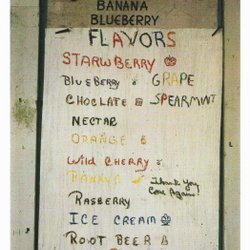 BANANA
BLUEBERRY
FLAVORS
STARWBERRY
BLUEBERRY GRAPE
CHOCLATE SPEARMINT
NECTAR
ORANGE
Wild CHERRY
BANANA Thank You
Come Again
RASBERRY
ICE CREAM
ROOT BEER